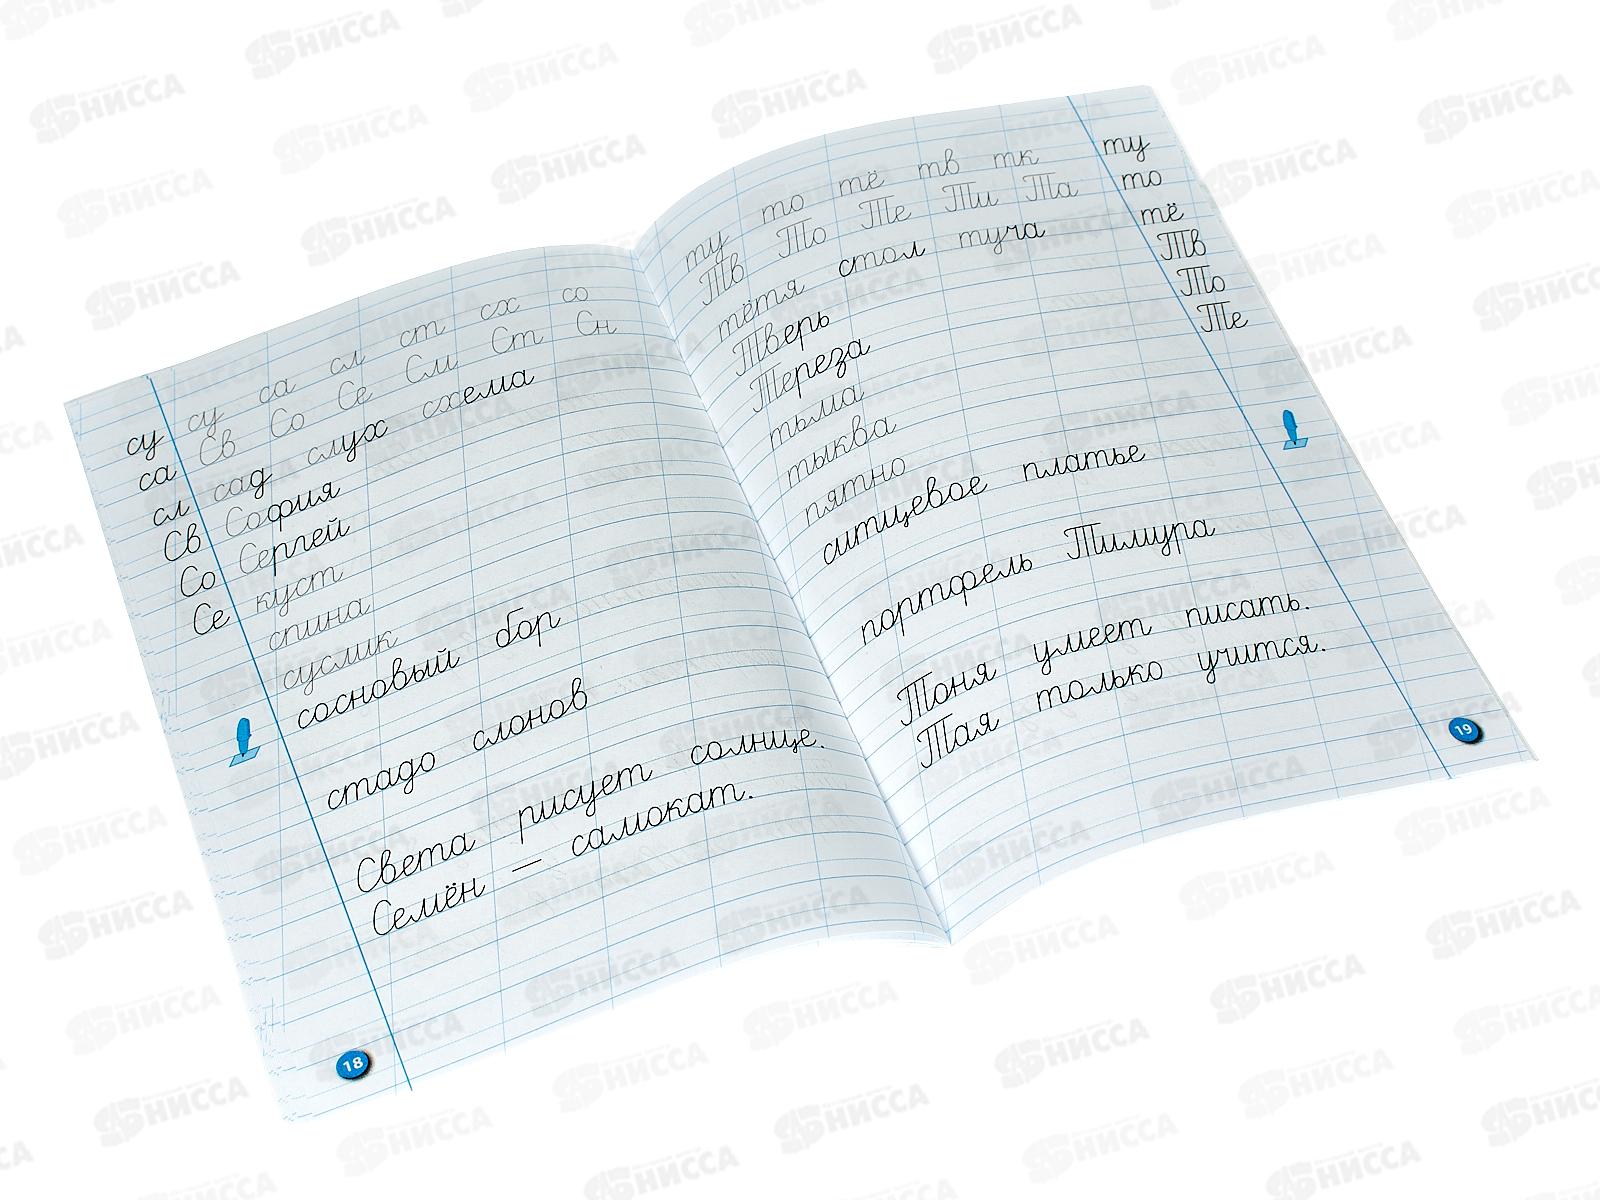 су су са сл ст сх со
са Св Со Се См Ст Сн
сл сад слух схема
Св София
Со Сергей
Се куст
спина
суслик
сосновый бор
стадо слонов
Света рисует солнце.
Семён – самокат.
18
ту то тё тв тк ту
Тв То Те Ти Та то
тётя стол туча тё
Тверь Тв
Тереза То
тьма Те
тыква
пятно
ситцевое платье
портфель Тимура
Тоня умеет писать.
Тая только учится.
19
НИССА